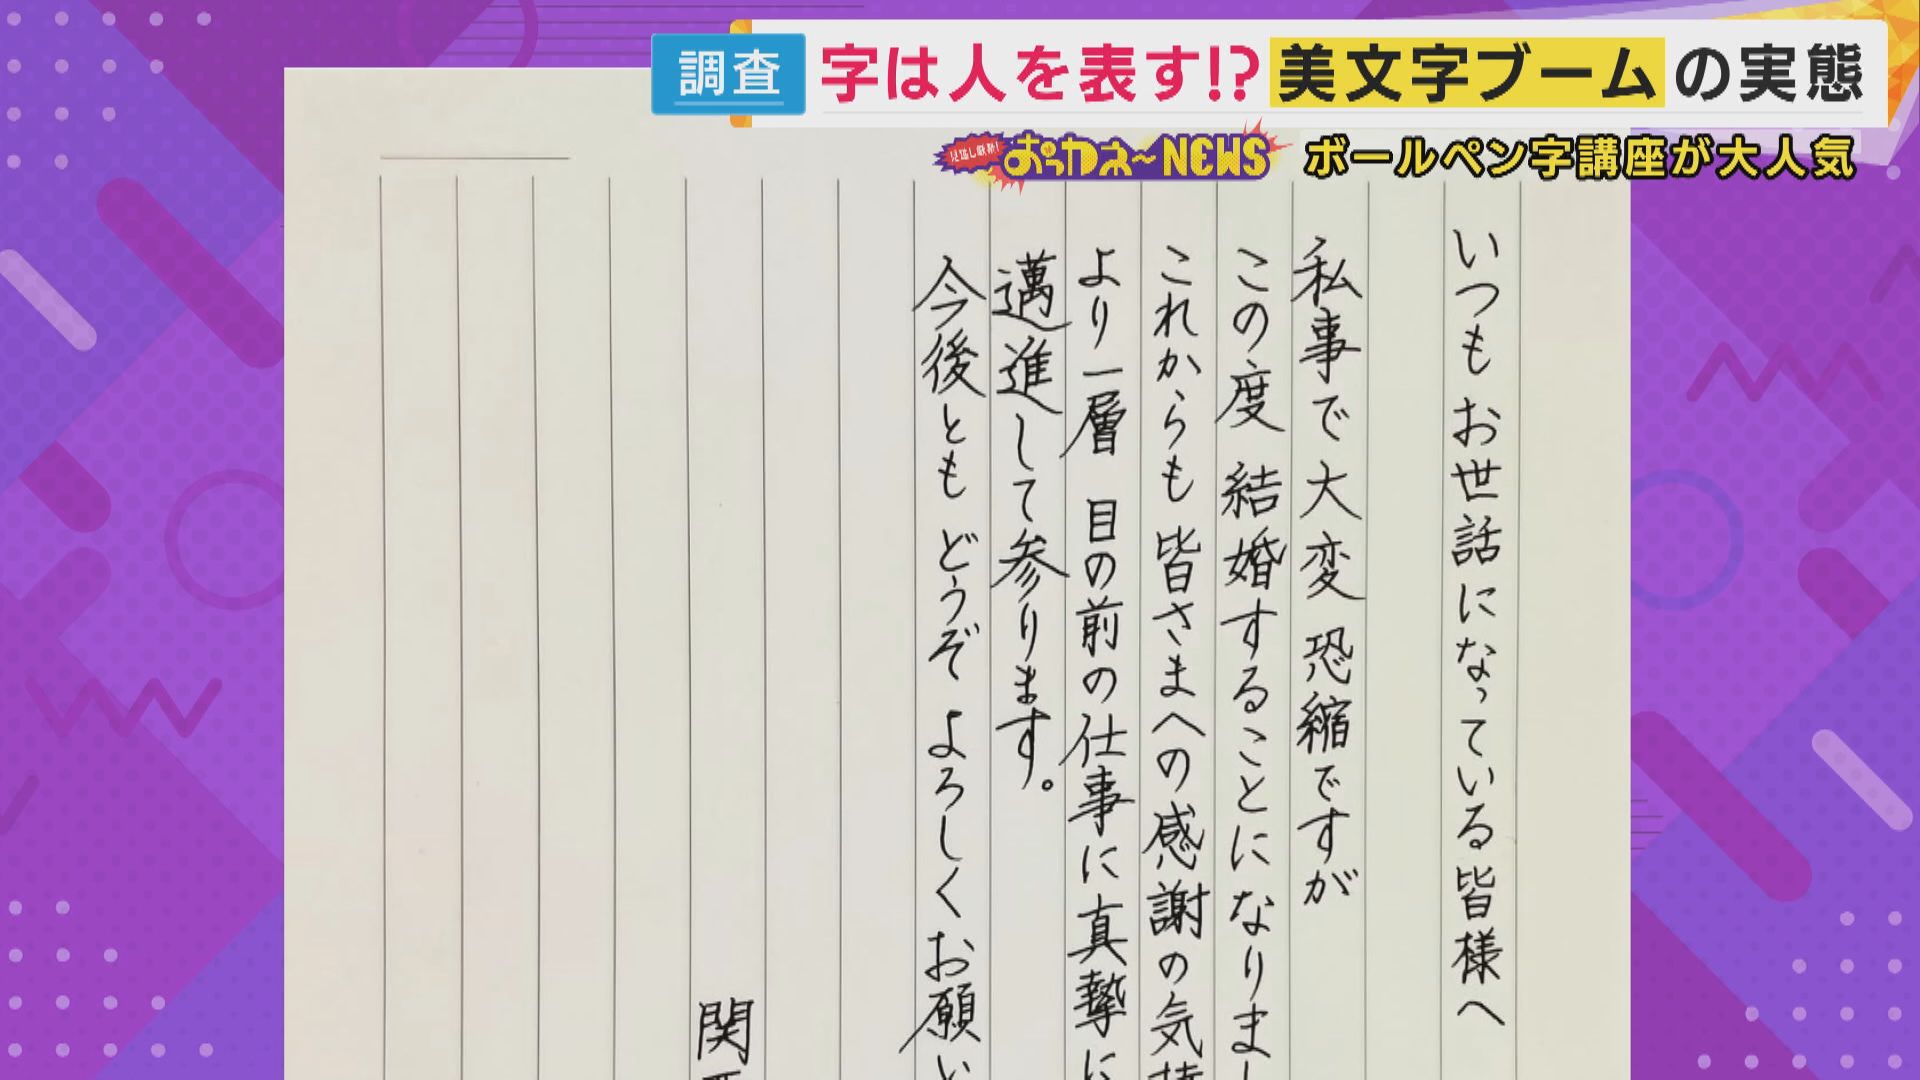 調査
字は人を表す!?美文字ブームの実態
見逃し厳禁!
おっカネ~NEWS
ボールペン字講座が大人気
いつもお世話になっている皆様へ
私事で大変恐縮ですが
この度 結婚することになりまし
これからも皆さまへの感謝の気持
より一層 目の前の仕事に真摯に
邁進して参ります。
今後とも どうぞ よろしくお願い
関